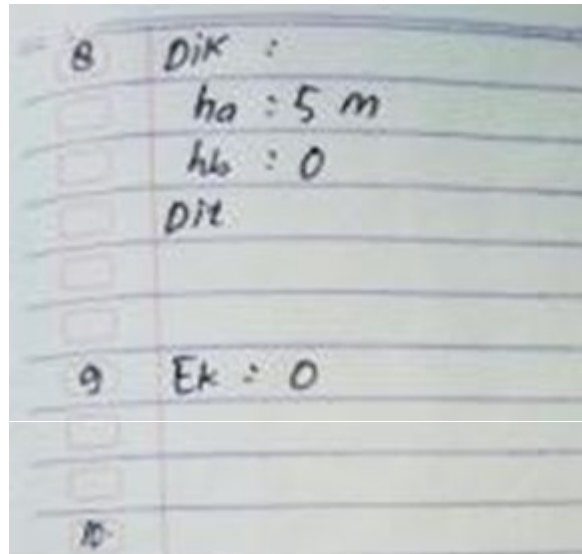 8 Dik :
ha : 5 m
hb : 0
Dit
9 Ek : 0
10.